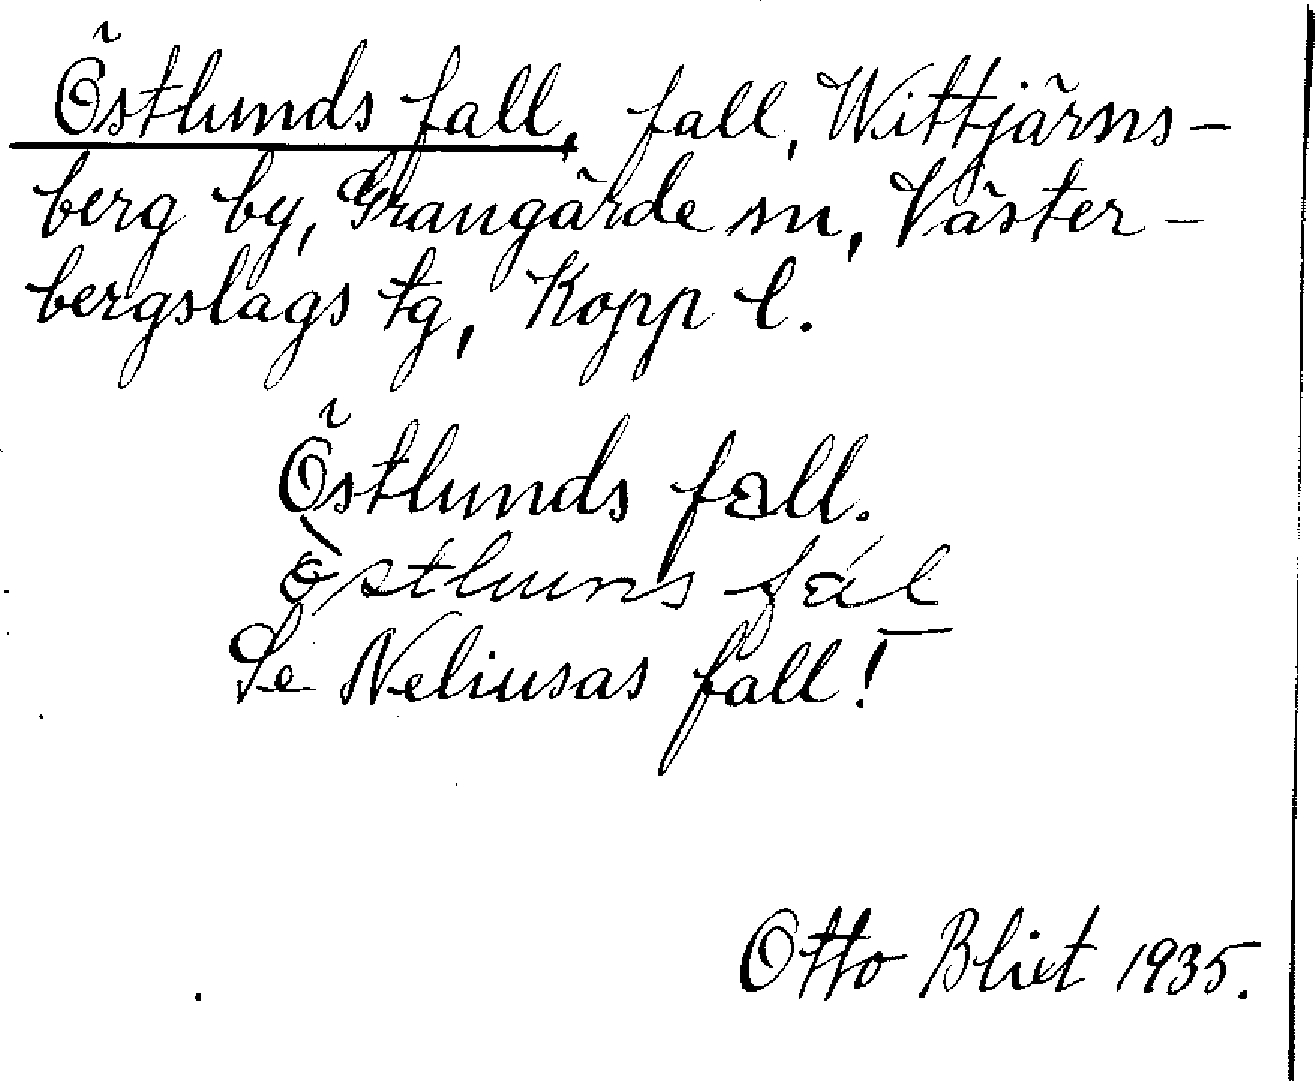 Östlunds fall, fall, Wittjärns-
berg by, Grangärde sn, Väster-
bergslags tg, Kopp l.
Östlunds fall.
Se Neliusas fall!
Otto Blixt 1935.